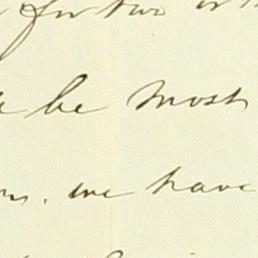 for two or
be most
we have